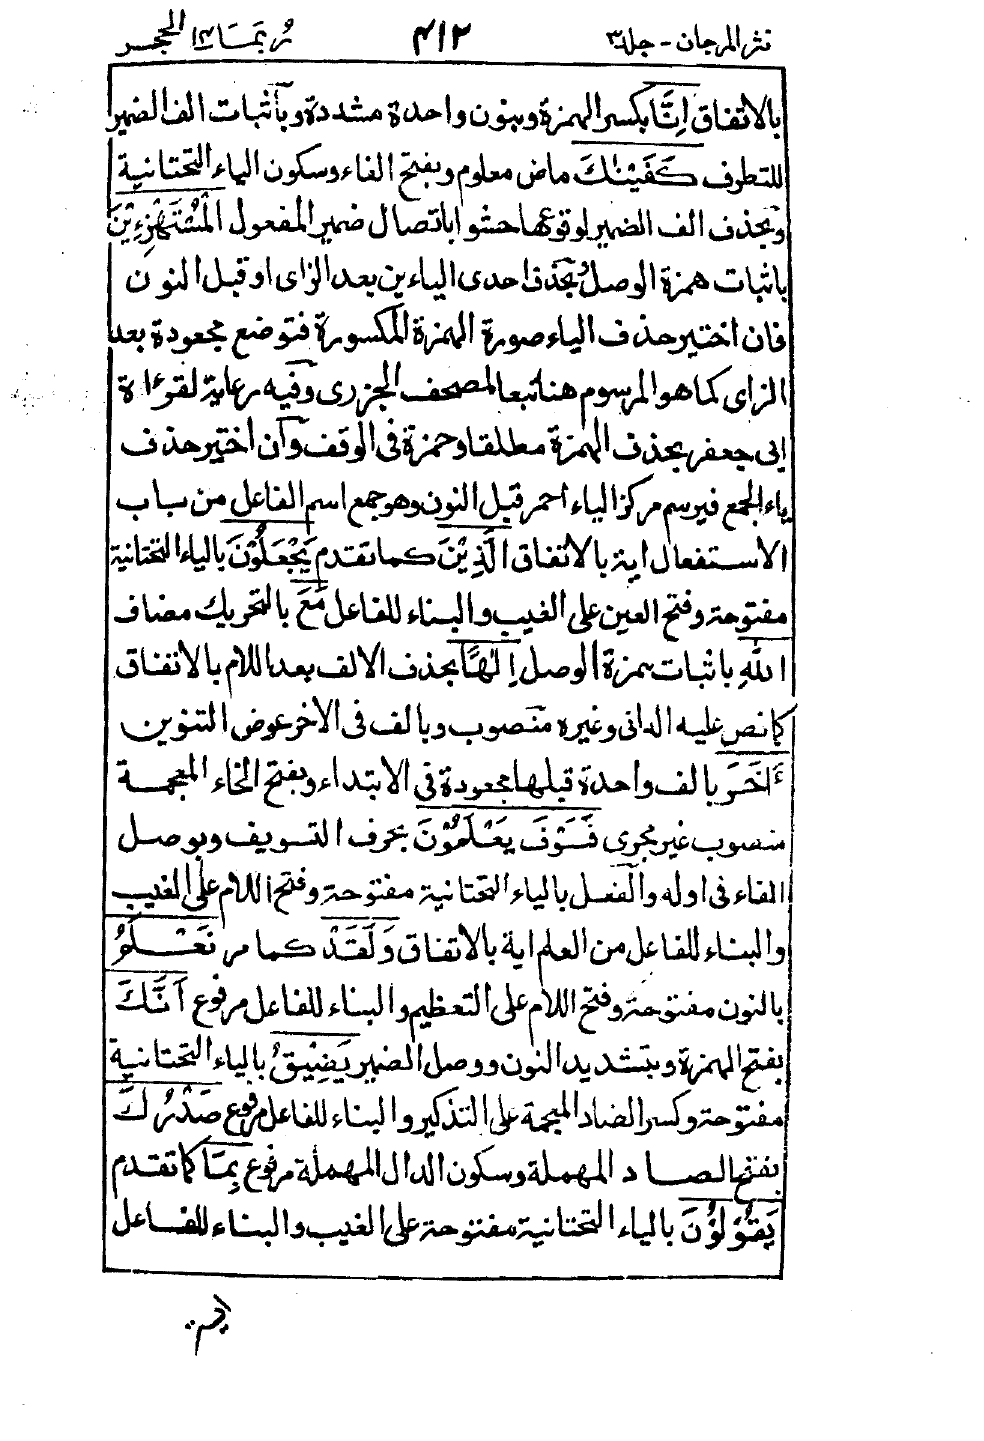 نثر المرجان - جلد ٣ ٤١٢ ربما ١٤ الحجر
بالاتفاق اِنَّا بكسر الهمزة وبنون واحدة مشددة وبآثبات الف الضمير
للتطرف كَفَيْنٰكَ ماض معلوم وبفتح الفاء وسكون الياء التحتانية
وبحذف الف الضمير لوقوعها حشوا باتصال ضمير المفعول الْمُسْتَهْزِءِيْنَ
باثبات همزة الوصل وبحذف احدى الياءين بعد الزاى او قبل النون
فان اختير حذف الياء صورة الهمزة المكسورة فتوضع مجعودة بعد
الزاى كما هو المرسوم هنا تبعا لمصحف الجزرى وفيه رعاية لقراءة
ابى جعفر بحذف الهمزة مطلقا وحمزة فى الوقف وآن اختير حذف
ياء الجمع فيرسم مركز الياء احمر قبل النون وهو جمع اسم الفاعل من باب
الاستفعال اية بالاتفاق الَّذِيْنَ كما تقدم يَجْعَلُوْنَ بالياء التحتانية
مفتوحة وفتح العين على الغيب والبناء للفاعل مَعَ بالتحريك مضاف
اللّٰهِ باثبات همزة الوصل اِلٰهًا بحذف الالف بعد اللام بالاتفاق
كما نص عليه الدانى وغيره منصوب وبالف فى الاخر عوض التنوين
ءَاخَرَ بالف واحدة قبلها مجعودة فى الابتداء وبفتح الخاء المعجمة
منصوب غير مجرى فَسَوْفَ يَعْلَمُوْنَ بحرف التسويف وبوصل
الفاء فى اوله والفعل بالياء التحتانية مفتوحة وفتح اللام على الغيب
والبناء للفاعل من العلم اية بالاتفاق وَلَقَدْ كما مر نَعْلَمُ
بالنون مفتوحة وفتح اللام على التعظيم والبناء للفاعل مرفوع اَنَّكَ
بفتح الهمزة وبتشديد النون ووصل الضمير يَضِيْقُ بالياء التحتانية
مفتوحة وكسر الضاد المعجمة على التذكير والبناء للفاعل مرفوع صَدْرُكَ
بفتح الصاد المهملة وسكون الدال المهملة مرفوع بِمَا كما تقدم
يَقُوْلُوْنَ بالياء التحتانية مفتوحة على الغيب والبناء للفاعل